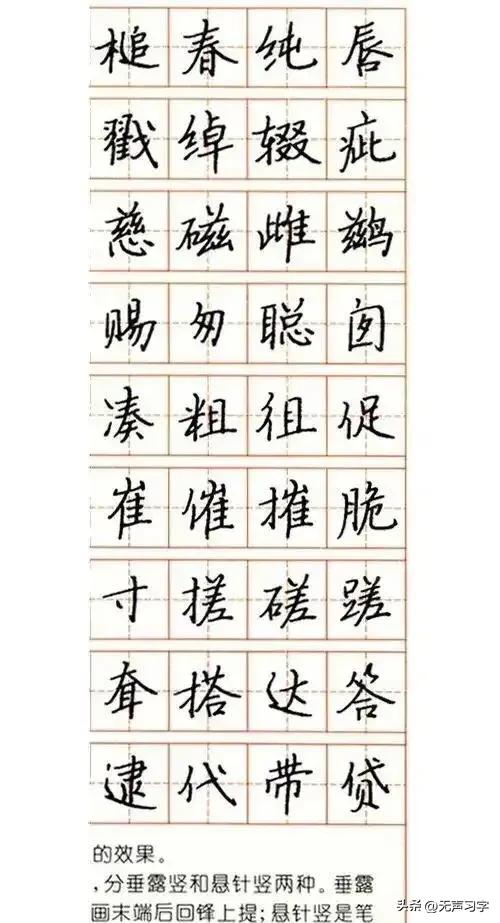 槌春纯唇
戳绰辍疵
慈磁雌鹚
赐匆聪囱
凑粗徂促
崔催摧脆
寸搓磋蹉
耷搭达答
逮代带贷
的效果。
,分垂露竖和悬针竖两种。垂露
画末端后回锋上提;悬针竖是笔
头条@无声习字